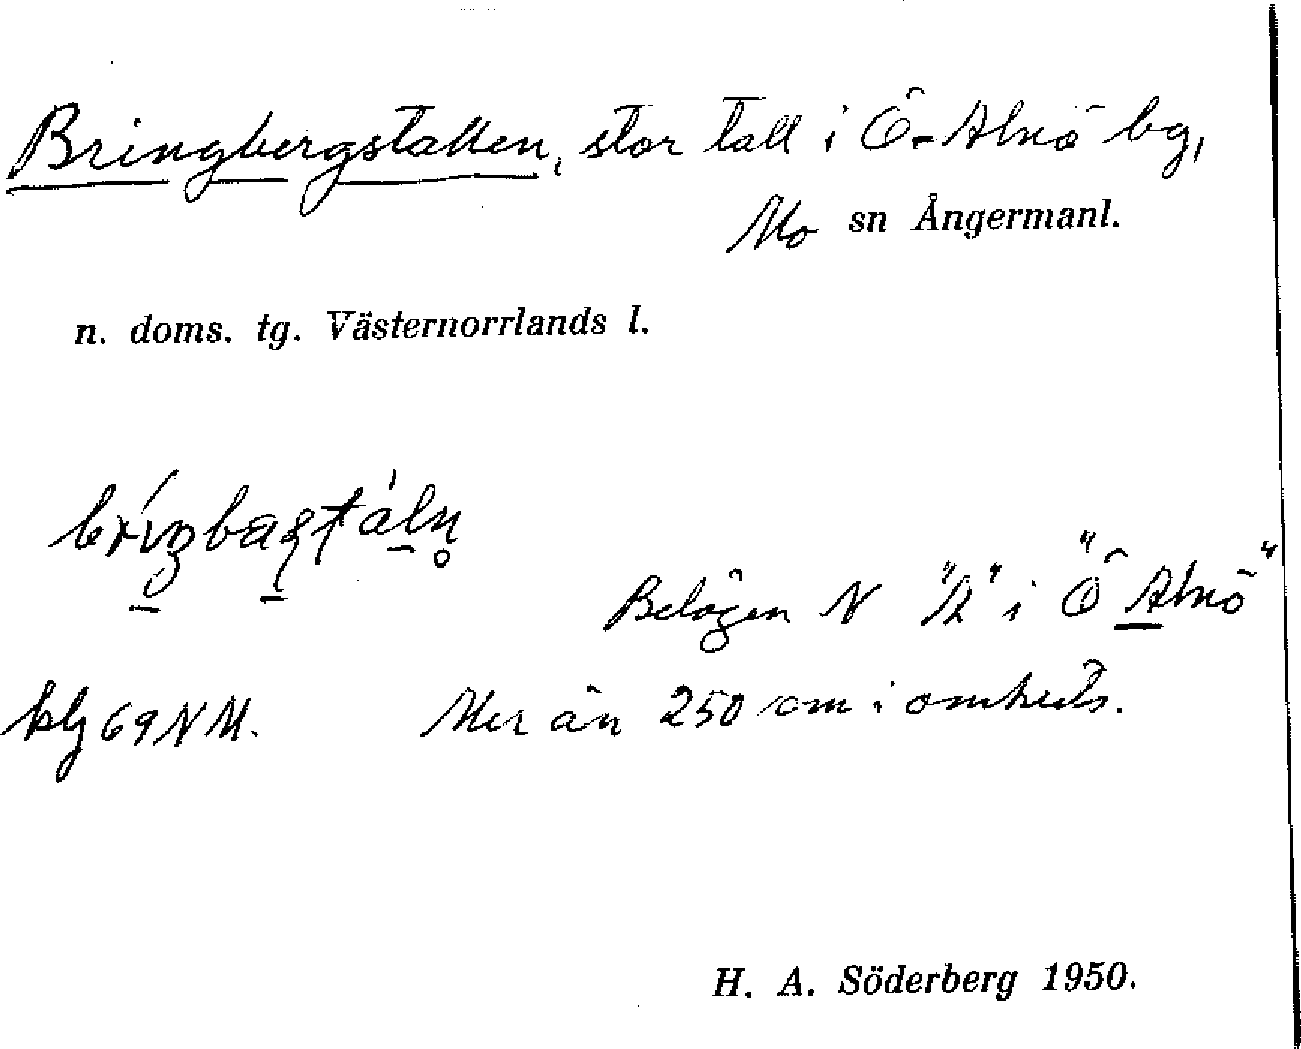 Bringbergstallen, stor tall i Ö-Alnö bg,
Mo sn Ångermanl.
n. doms. tg. Västernorrlands l.
Belägen N "A" i "Ö Alnö"
69 NM. Mer än 250 cm i omkrets.
H. A. Söderberg 1950.